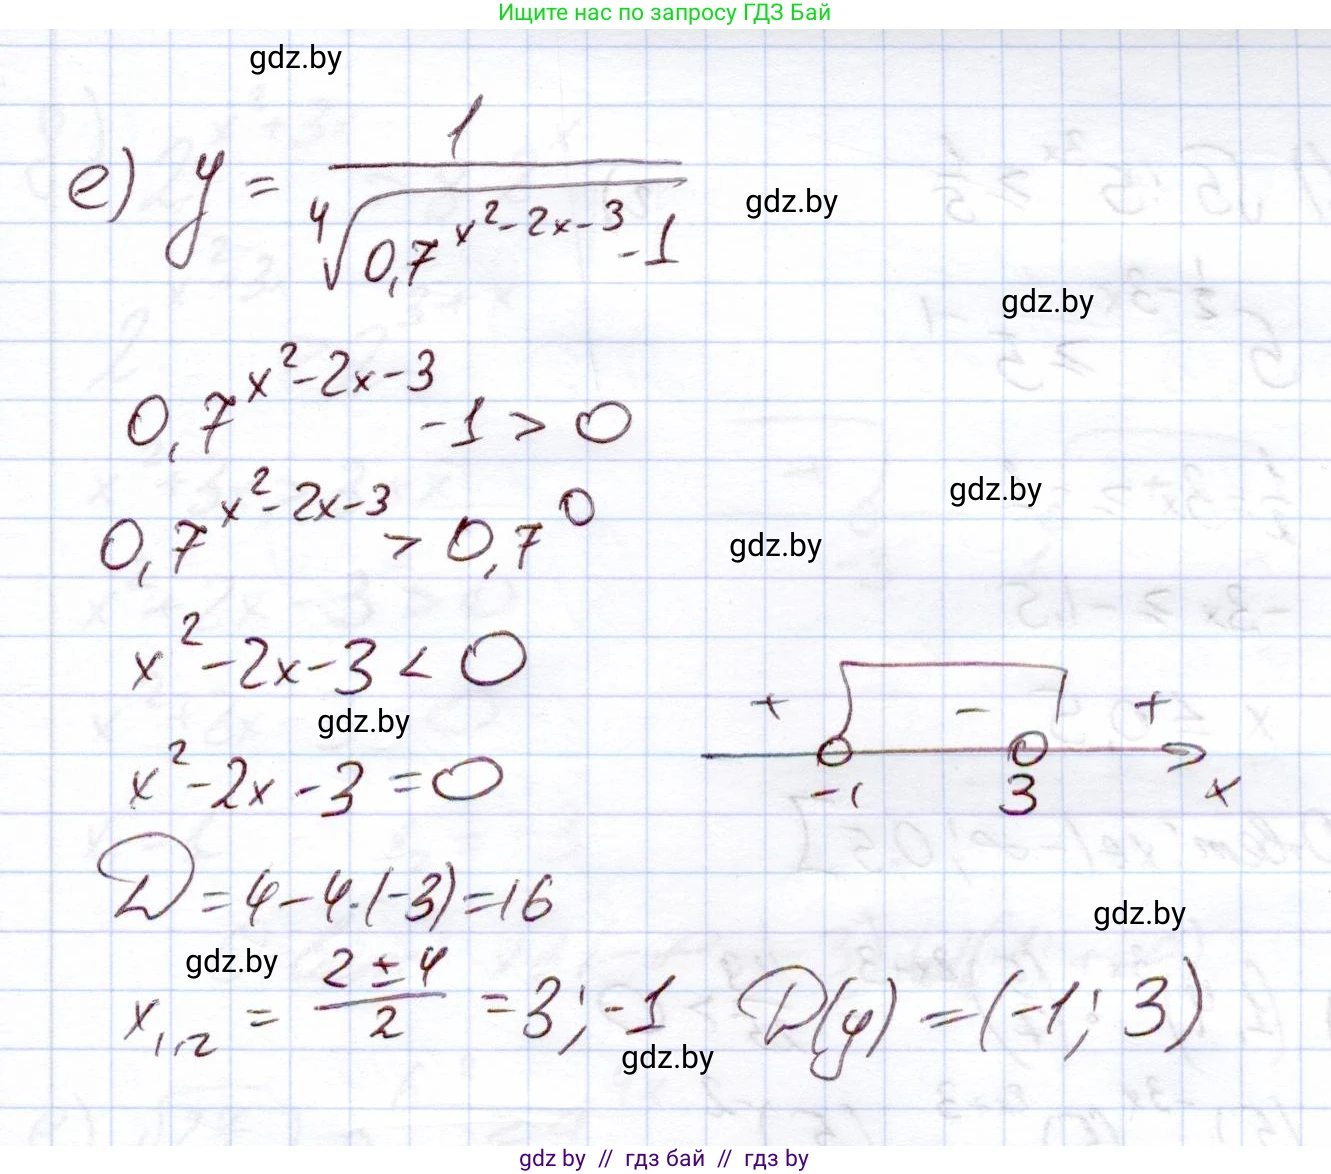 Ищите нас по запросу ГДЗ Бай
gdz.by
е) y = 1 / ⁴√(0,7^(x²-2x-3) - 1)
gdz.by
gdz.by
0,7^(x²-2x-3) - 1 > 0
gdz.by
0,7^(x²-2x-3) > 0,7^0
gdz.by
x² - 2x - 3 < 0
gdz.by
+ - +
-1 3 x
x² - 2x - 3 = 0
D = 4 - 4·(-3) = 16
gdz.by
gdz.by
x₁,₂ = (2 ± 4) / 2 = 3; -1 D(y) = (-1; 3)
gdz.by
gdz by // гдз бай // гдз by